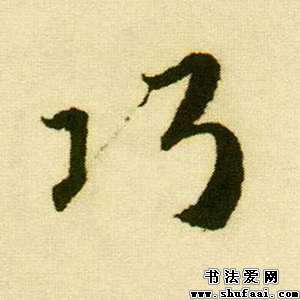 巧
书法爱网
www.shufaai.com